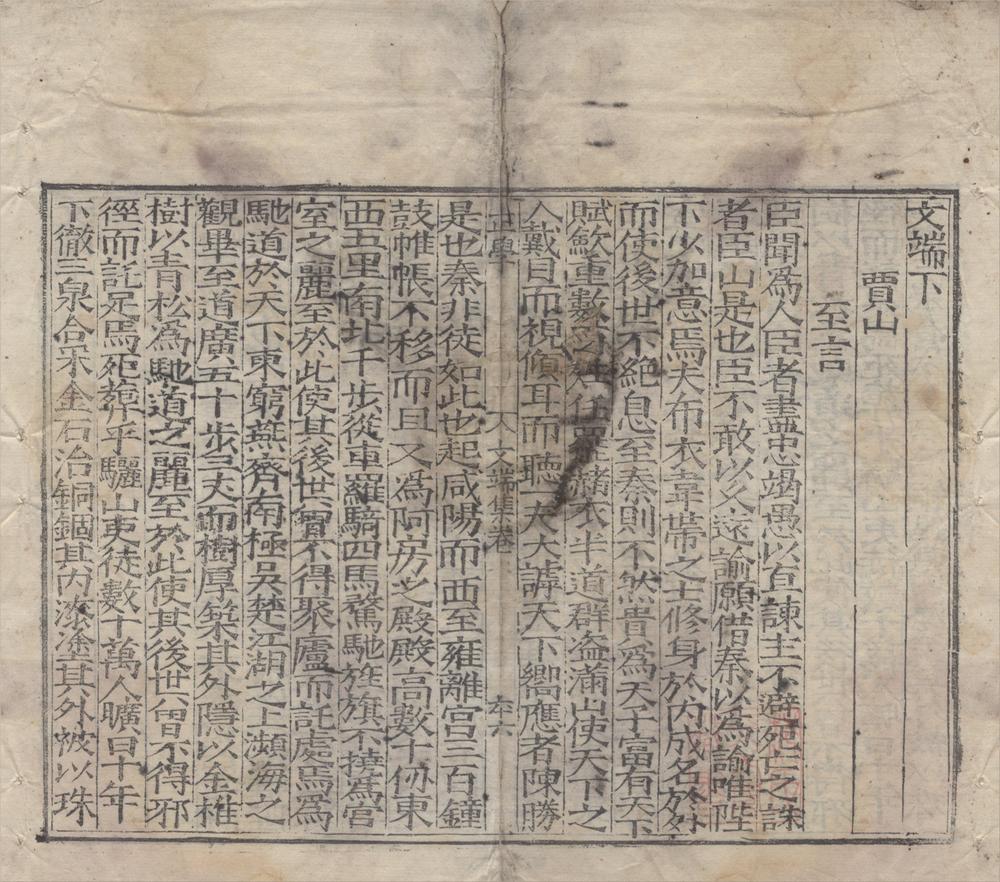 文端下
賈山
至言
臣聞爲人臣者盡忠竭愚以直諫主不避死亡之誅
者臣山是也臣不敢以久遠諭願借秦以爲諭唯陛
下少加意焉夫布衣韋帶之士修身於內成名於外
而使後世不絶息至秦則不然貴爲天子富有天下
賦歛重數 任罪赭衣半道群盗滿山使天下之
人戴目而視傾耳而聽一夫大謼天下嚮應者陳勝
是也秦非徒如此也起咸陽而西至雍離宫三百鐘
鼓帷帳不移而具又爲阿房之殿殿高數十仞東
西五里南北千步從車羅騎四馬騖馳旌旗不撓爲宫
室之麗至於此使其後世曾不得聚廬而託處焉爲
馳道於天下東窮燕齊南極吳楚江湖之上瀕海之
觀畢至道廣五十步三丈而樹厚築其外隱以金椎
樹以青松爲馳道之麗至於此使其後世曾不得邪
徑而託足焉死葬乎驪山吏徒數十萬人曠日十年
下徹三泉合采金石冶銅錮其內漆塗其外被以珠
文端集卷
六十六